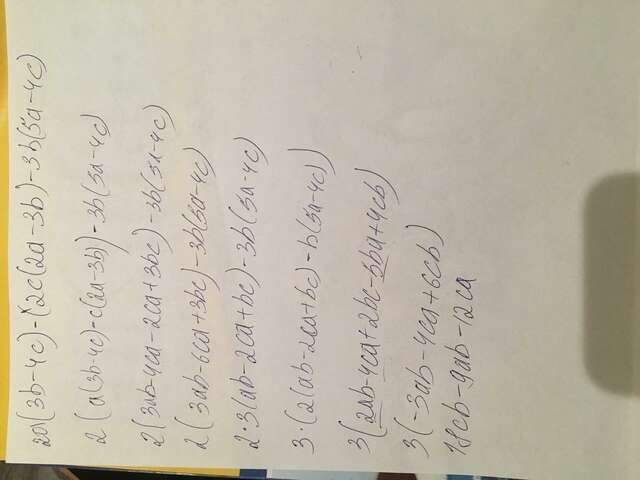 2a(3b-4c)-(2c(2a-3b)-3b(5a-4c)
2(a(3b-4c)-c(2a-3b))-3b(5a-4c)
2(3ab-4ca-2ca+3bc)-3b(5a-4c)
2(3ab-6ca+3bc)-3b(5a-4c)
2·3(ab-2ca+bc)-3b(5a-4c)
3·(2(ab-2ca+bc)-b(5a-4c))
3(2ab-4ca+2bc-5ba+4cb)
3(-3ab-4ca+6cb)
18cb-9ab-12ca